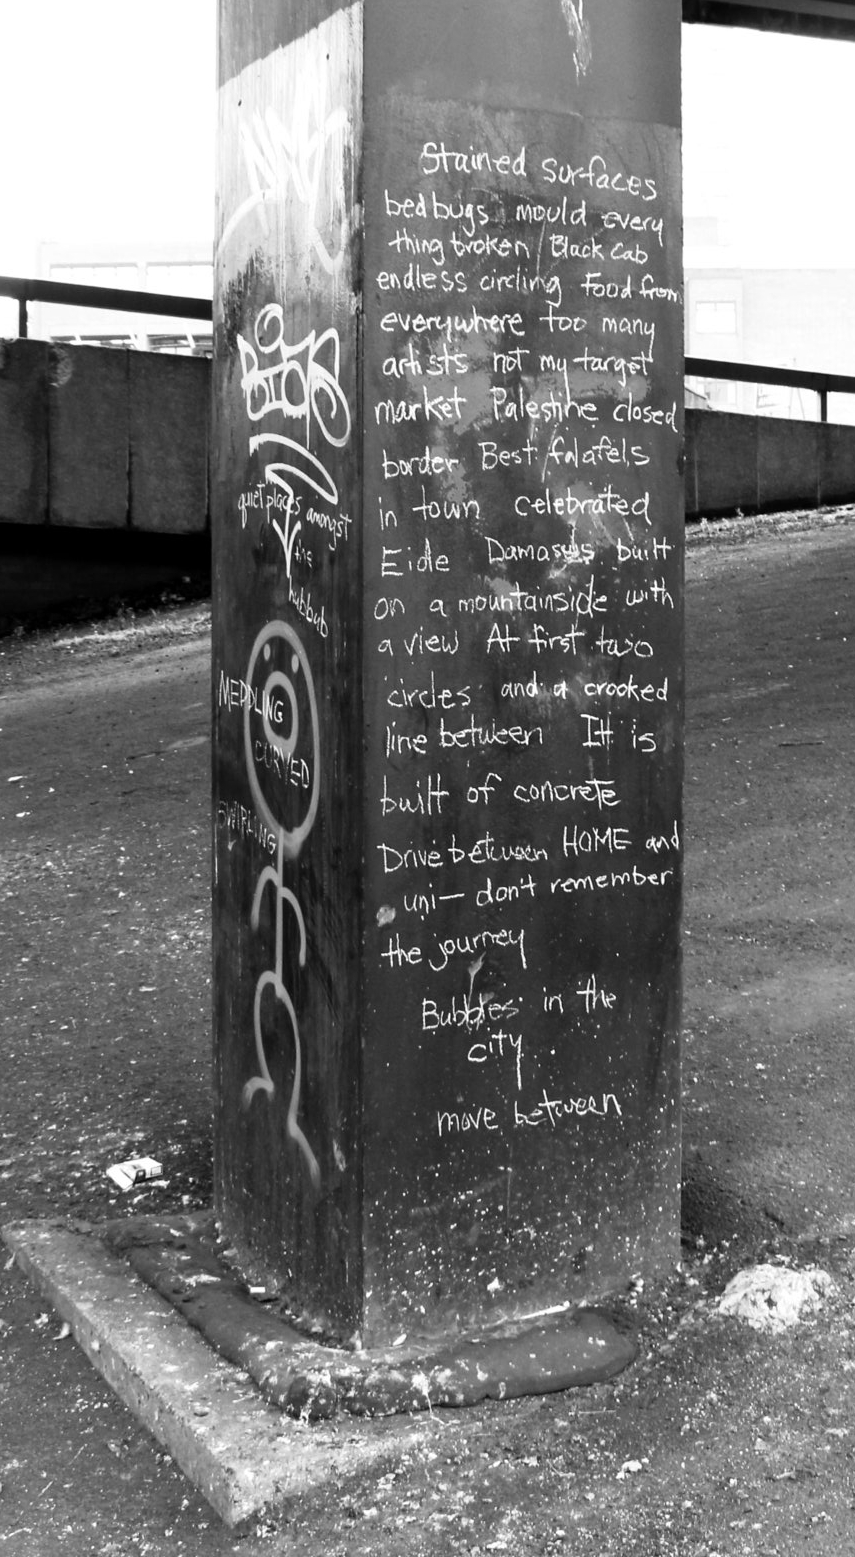 Stained surfaces
bedbugs mould every
thing broken Black Cab
endless circling Food from
everywhere too many
artists not my target
market Palestine closed
border Best falafels
in town celebrated
Eide Damascus built
on a mountainside with
a view At first two
circles and a crooked
line between It is
built of concrete
Drive between HOME and
uni— don't remember
the journey
Bubbles in the
city
move between
quiet places amongst
the
hubbub
MEDDLING
CURVED
SWIRLING